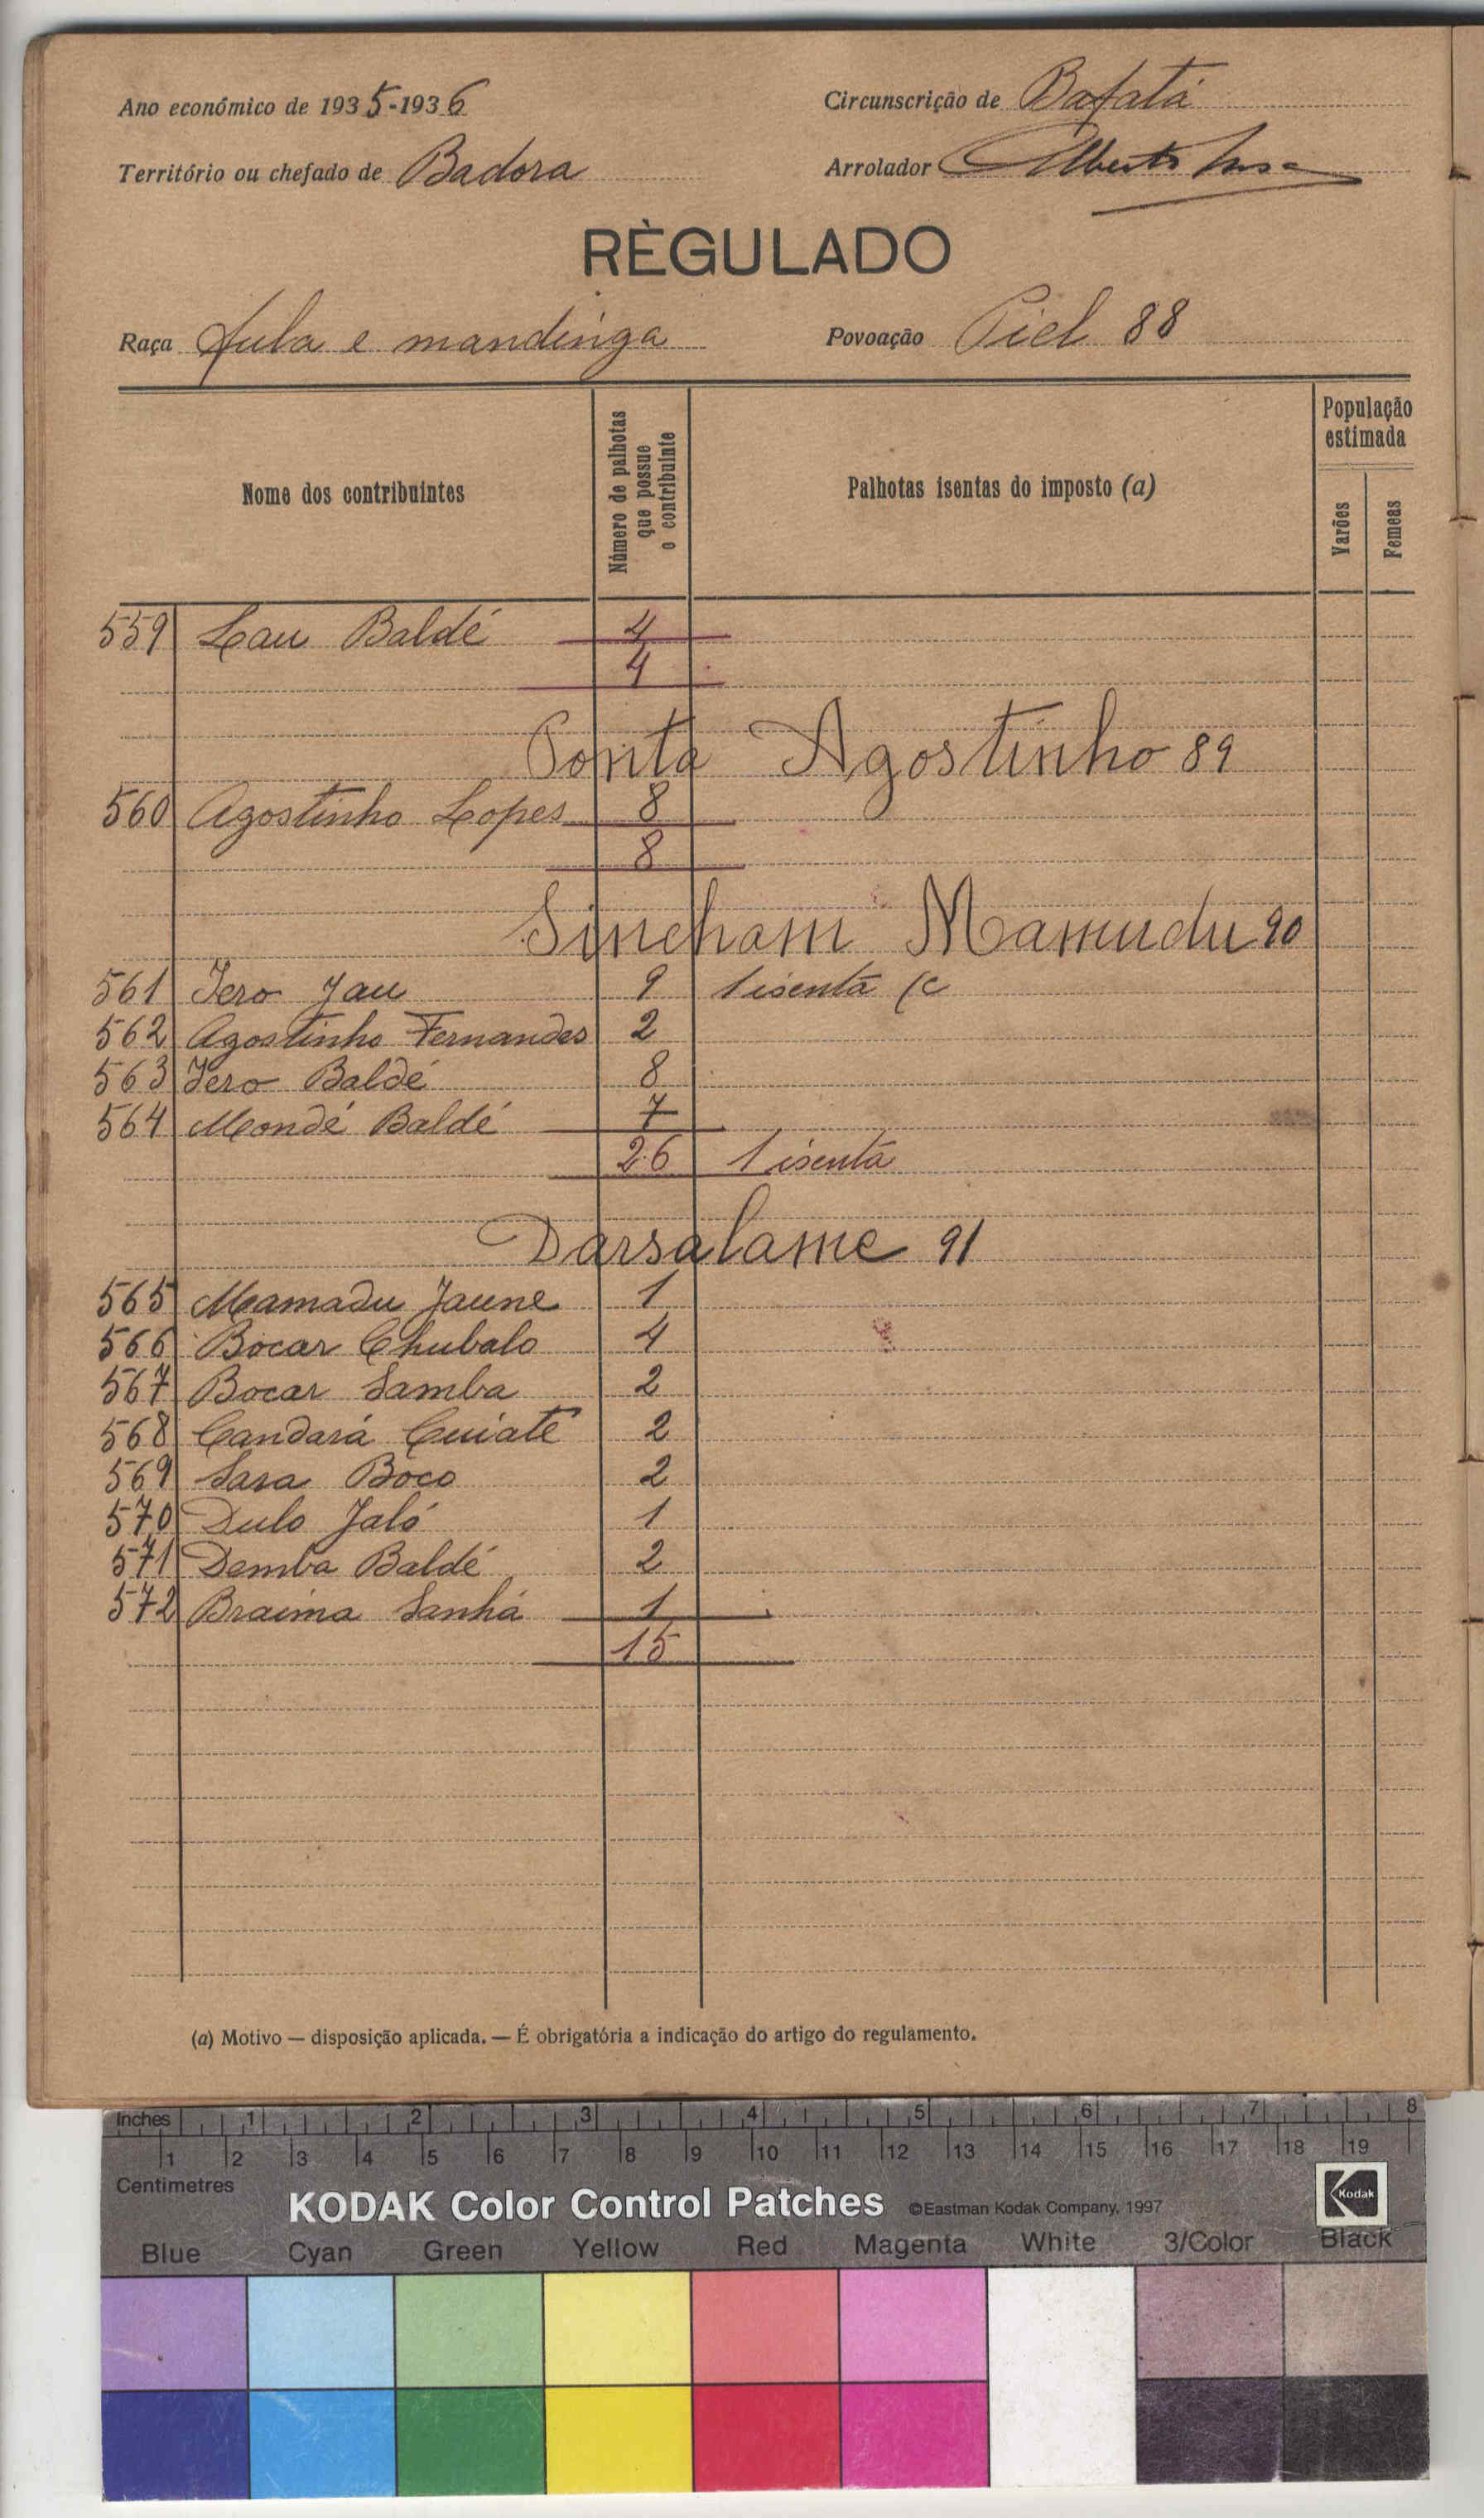 Ano económico de 1935-1936
Circunscrição de Bafatá
Território ou chefado de Badora
Arrolador Alberto
RÈGULADO
Raça Fula e mandinga
Povoação Piel 88
Nome dos contribuintes
Número de palhotas que possue o contribuinte
Palhotas isentas do imposto (a)
População estimada
Varões
Femeas
559 Lau Baldé 4
4
Ponta Agostinho 89
560 Agostinho Lopes 8
8
Sincham Mamudu 90
561 Iero Jau 9 1 isenta (c
562 Agostinho Fernandes 2
563 Iero Baldé 8
564 Mondé Baldé 7
26 1 isenta
Darsalame 91
565 Mamadu Jaune 1
566 Bocar Chubalo 4
567 Bocar Samba 2
568 Candará Cuiaté 2
569 Sara Boco 2
570 Dulo Jaló 1
571 Demba Baldé 2
572 Braima Sanhá 1
15
(a) Motivo — disposição aplicada. — É obrigatória a indicação do artigo do regulamento.
Inches 1 2 3 4 5 6 7 8
1 2 3 4 5 6 7 8 9 10 11 12 13 14 15 16 17 18 19
Centimetres
KODAK Color Control Patches ©Eastman Kodak Company, 1997 Kodak
Blue Cyan Green Yellow Red Magenta White 3/Color Black